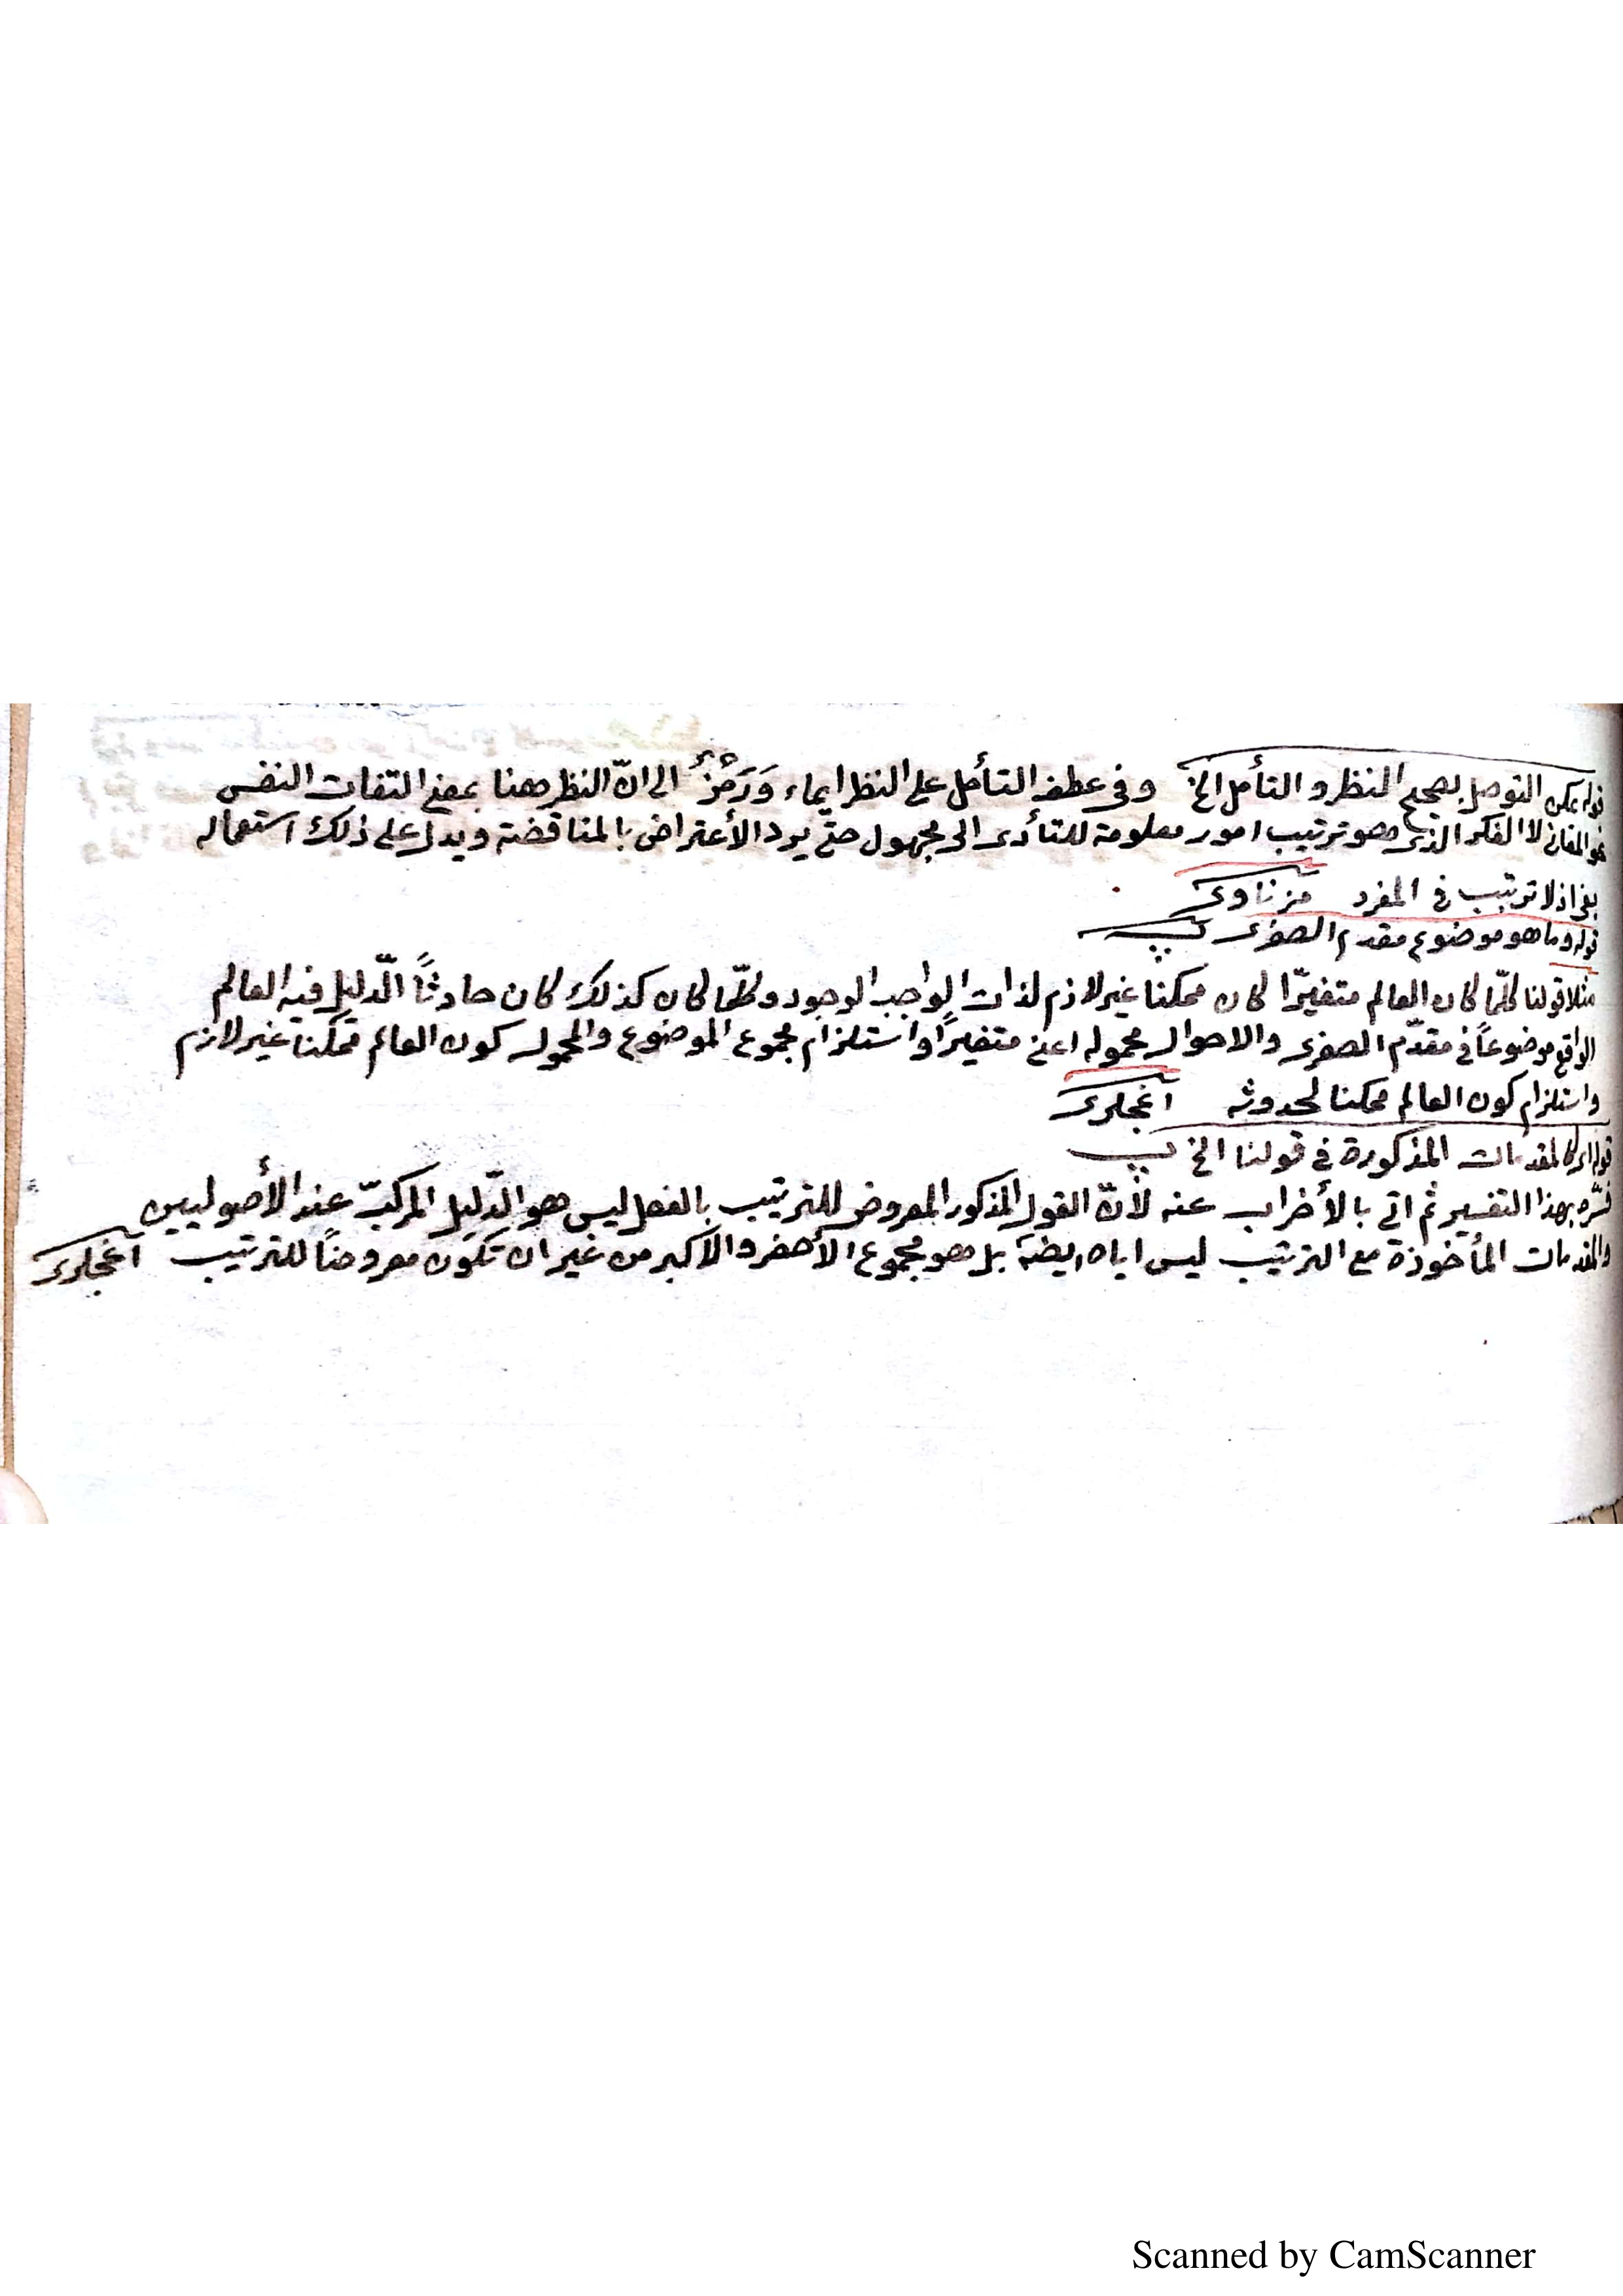 قوله يمكن التوصل بصحيح النظر و التأمل الخ وفى عطف التأمل على النظر ايماء وَرَمْزٌ الى انّ النظر ههنا بمعنى التفات النفس
نحو المعانى لا الفكر الذى هو ترتيب امور معلومة للتأدى الى مجهول حتّى يرد الأعتراض بالمناقضة ويدل على ذلك استعماله
اذ لا ترتيب فى المفرد مزناوى
قوله وما هو موضوع مقدم الصغرى
مثلا قولنا كلّما كان العالم متغيّرا كان ممكنا غير لازم لذات الواجب الوجود وكلّما كان كذلك كان حادثاً الدّليل فيه العالم
الواقع موضوعاً فى مقدّم الصغرى والاحوال محموله اعنى متغيراً واستلزام مجموع الموضوع والمحمول كون العالم ممكنا غير لازم
واستلزام كون العالم ممكنا لحدوثه اغجلرى
قوله المقدمات المذكورة فى قولنا الخ
فسّره بهذا التفسير ثم اتى بالأضراب عنه لأنّ القول المذكور المعروض للترتيب بالفعل ليس هو الدّليل المركبّ عند الأصوليين
والمقدمات المأخوذة مع الترتيب ليس اياه ايضا بل هو مجموع الأصغر والاكبر من غير ان تكون معروضاً للترتيب اغجلرى
Scanned by CamScanner